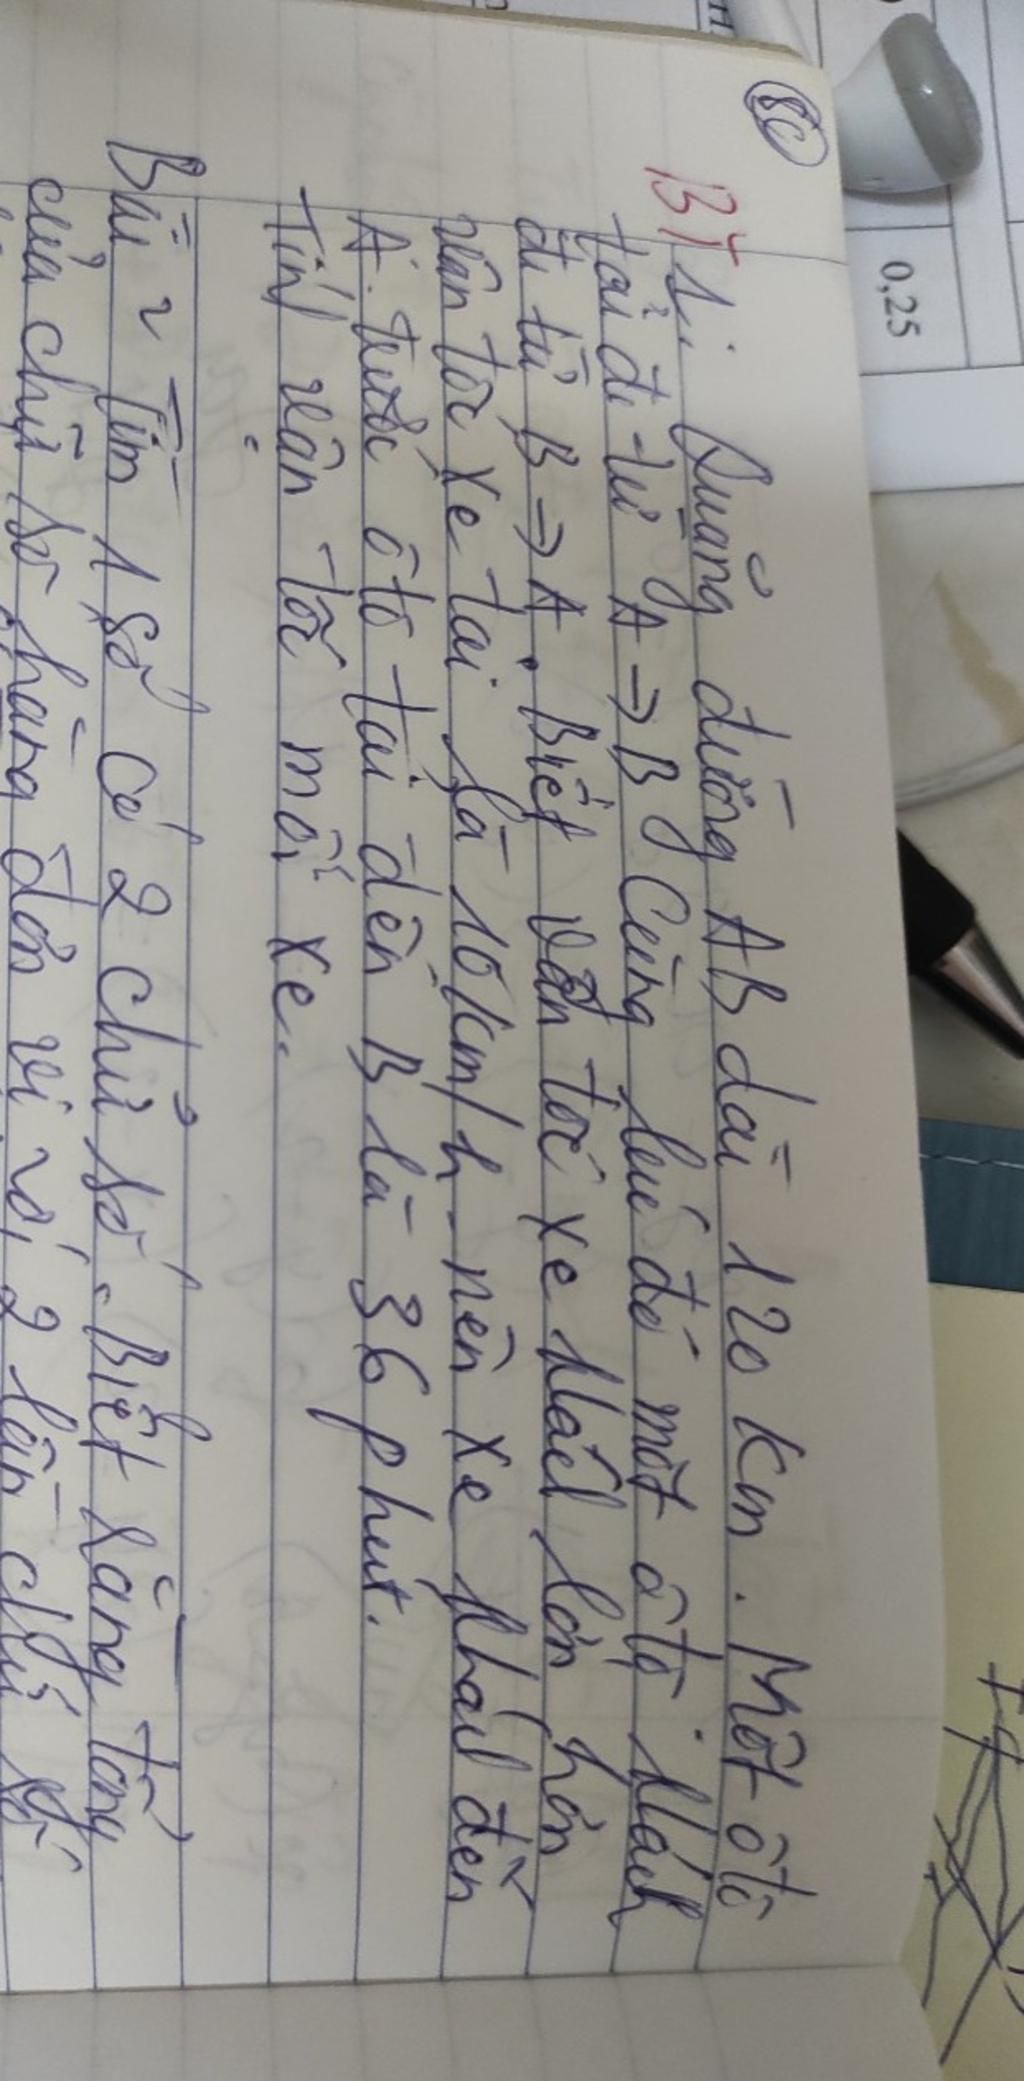 8C
0,25
BT 1: Quãng đường AB dài 120 km. Một ôtô
tải đi từ A → B Cùng lúc đó một ôtô khách
đi từ B → A. Biết vận tốc xe khách lớn hơn
vận tốc xe tải là 10 km/h nên xe khách đến
A trước ôtô tải đến B là 36 phút.
Tính vận tốc mỗi xe.
Bài 2 Tìm 1 số có 2 chữ số. Biết rằng tổng
của chữ số hàng đơn vị với 2 lần chữ số